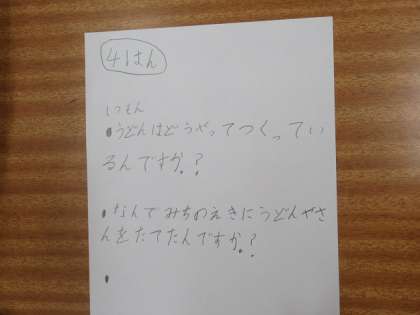 41はん
しつもん
•うどんはどうやってつくってい
るんですか。?
•なんでみちのえきにうどんやさ
んをたてたんですか。?
•